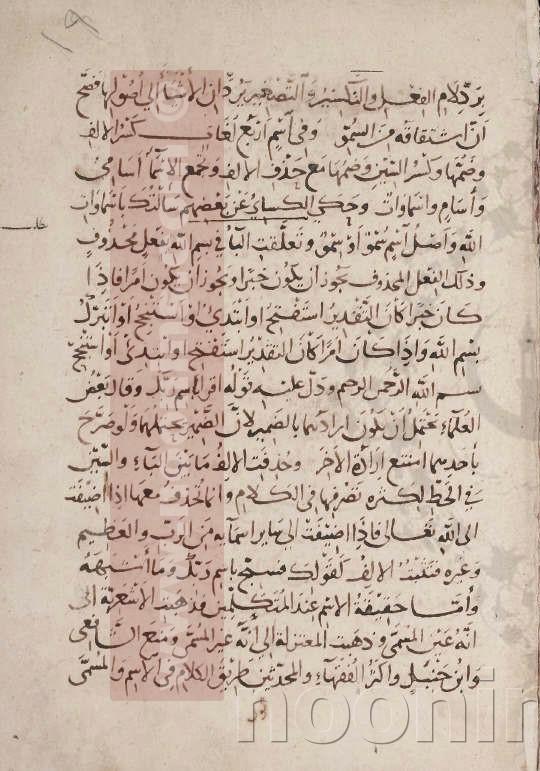 ١٩
يرد لام الفعل والتكسير والتصغير يردان الأشياء إلى أصولها فصح
أن اشتقاقه من السمو وفي اسم أربع لغات كسر الألف
وضمها وكسر السين وضمها مع حذف الألف وجمع الاسم أسامي
وأسام واسماوات وحكى الكسائي عن بعضهم سألتك باسماوات
الله وأصل اسم سمو أو سمو وتعلقت الباء في بسم الله بفعل محذوف
وذلك الفعل المحذوف يجوز أن يكون خبرا ويجوز أن يكون أمرا فإذا
كان خبرا كان التقدير استفتح أو ابتدئ أو استنجح أو اتبرك
بسم الله وإذا كان أمرا كان التقدير استفتح أو ابتدئ أو استنجح
بسم الله الرحمن الرحيم ودل عليه قوله اقرأ باسم ربك وقال بعض
العلماء يحتمل أن يكون أرادهما بالضمير لأن الضمير يحتملهما ولو صرح
بأحدهما امتنع إرادة الآخر وحذفت الألف ما بين الباء والسين
في الخط لكثرة تصرفها في الكلام وإنما تحذف معها إذا أضيفت
إلى الله تعالى فإذا أضيفت إلى سائر أسمائه من الرب والعظيم
وغيره فتثبت الألف كقولك فسبح باسم ربك وما أشبهه
وأما حقيقة الاسم عند المتكلمين فذهبت الأشعرية إلى
أنه عين المسمى وذهبت المعتزلة إلى أنه غير المسمى ومنع الشافعي
وابن حنبل وأكثر الفقهاء والمحدثين طريق الكلام في الاسم والمسمى
noonin